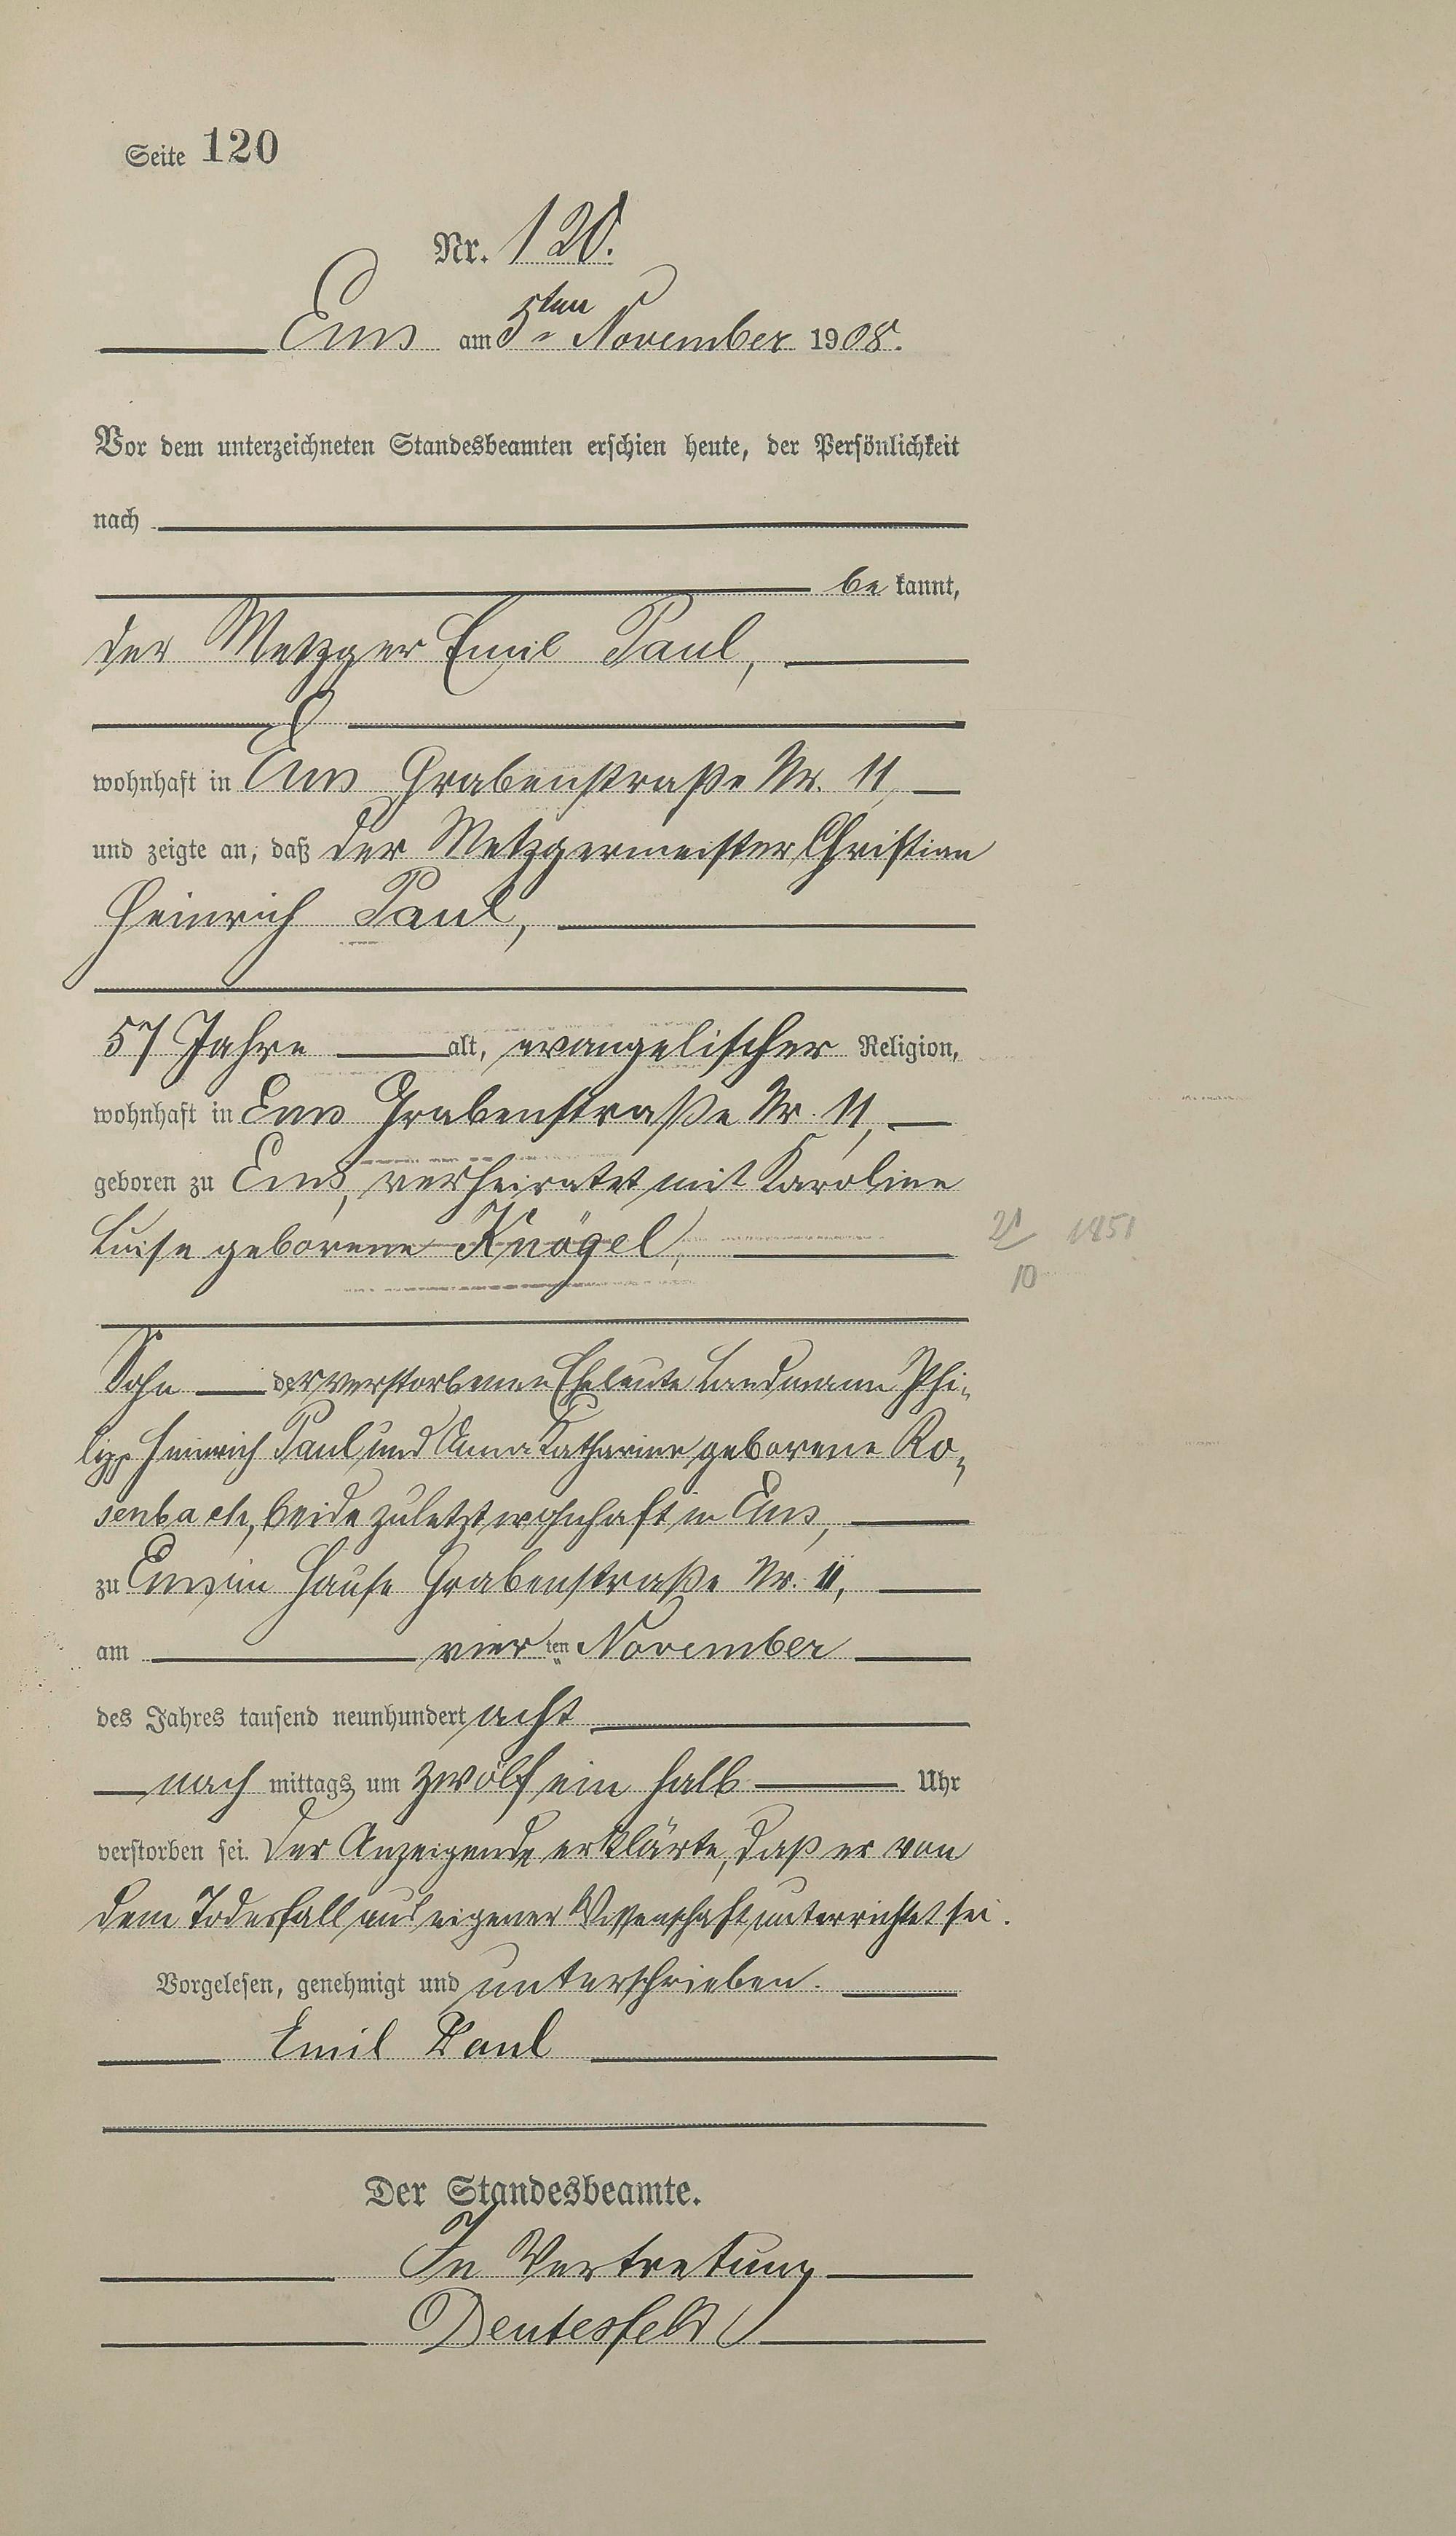 Seite 120
Nr. 120.
Ems am 5ten November 1908.
Vor dem unterzeichneten Standesbeamten erschien heute, der Persönlichkeit
nach
be kannt,
der Metzger Emil Paul,
wohnhaft in Ems Grabenstraße Nr. 11,
und zeigte an, daß der Metzgermeister Christian
Heinrich Paul,
57 Jahre alt, evangelischer Religion,
wohnhaft in Ems Grabenstraße Nr. 11,
geboren zu Ems, verheiratet mit Karoline
Luise geborene Knögel,
21/10 1851
Sohn der verstorbenen Eheleute Landmann Phi-
lipp Heinrich Paul und Anna Katharine geborene Ro-
senbach, beide zuletzt wohnhaft in Ems,
zu Ems im Hause Grabenstraße Nr. 11,
am vier ten November
des Jahres tausend neunhundert acht
nach mittags um zwölf ein halb Uhr
verstorben sei. Der Anzeigende erklärte, daß er von
dem Todesfall aus eigener Wissenschaft unterrichtet sei.
Vorgelesen, genehmigt und unterschrieben.
Emil Paul
Der Standesbeamte.
In Vertretung